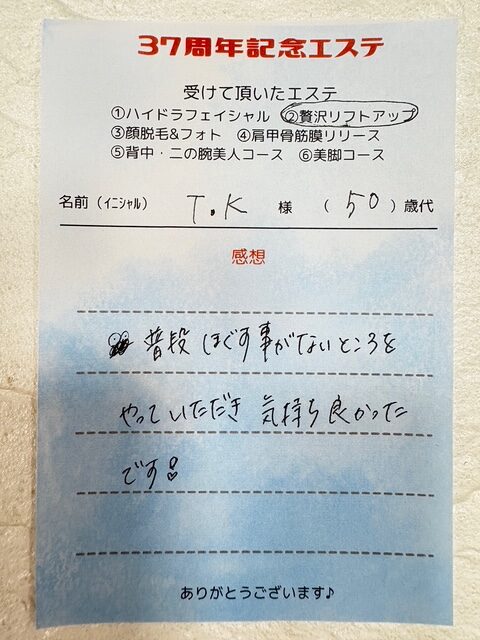 37周年記念エステ
受けて頂いたエステ
①ハイドラフェイシャル ②贅沢リフトアップ
③顔脱毛&フォト ④肩甲骨筋膜リリース
⑤背中・二の腕美人コース ⑥美脚コース
名前(イニシャル) T.K 様 (50)歳代
感想
普段ほぐす事がないところを
やっていただき 気持ち良かった
です!
ありがとうございます♪